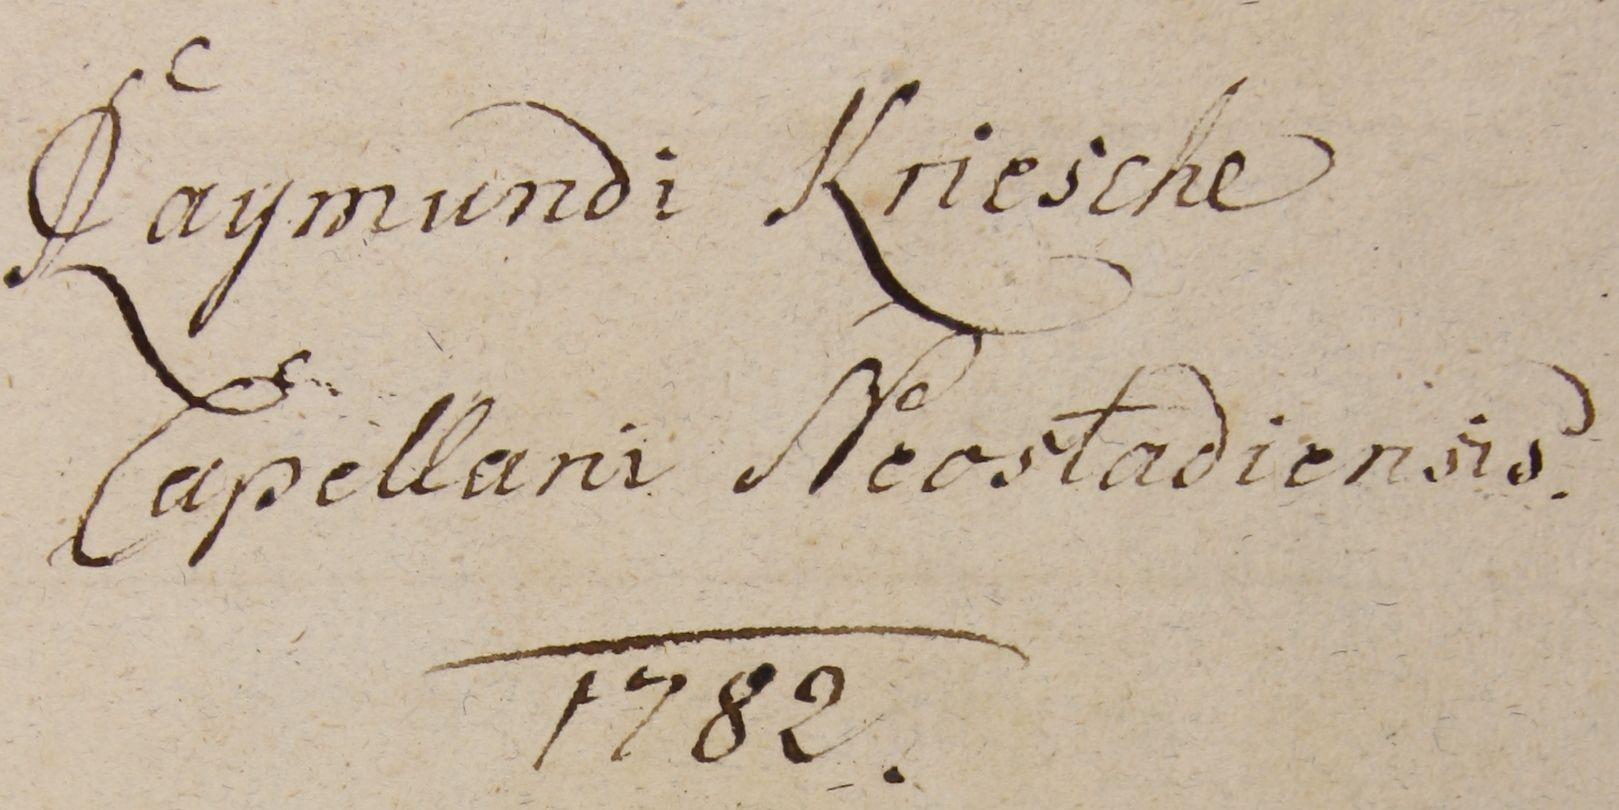 Raymundi Kriesche
Capellani Neostadiensis.
1782.